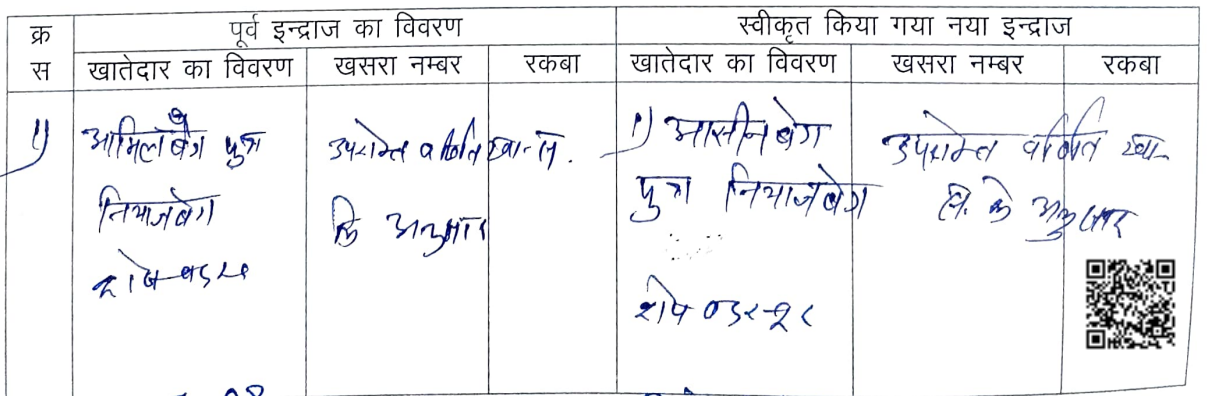 क्र स
पूर्व इन्द्राज का विवरण
स्वीकृत किया गया नया इन्द्राज
खातेदार का विवरण
खसरा नम्बर
रकबा
खातेदार का विवरण
खसरा नम्बर
रकबा
1)
पुत्र
नियाजबेग
उपरोक्त वर्णित
के अनुसार
1) आसीनबेग
पुत्र नियाजबेग
शेष
उपरोक्त वर्णित
के अनुसार